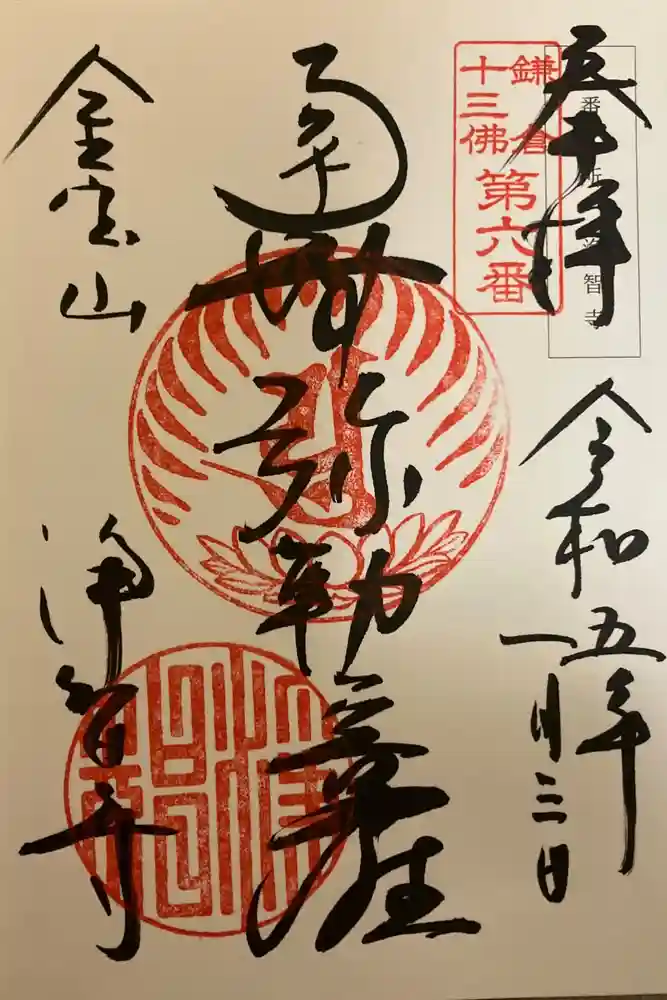 奉拝
鎌倉
十三佛
第六番
浄智寺
令和五年
一月三日
南無弥勒菩薩
金宝山
浄智寺